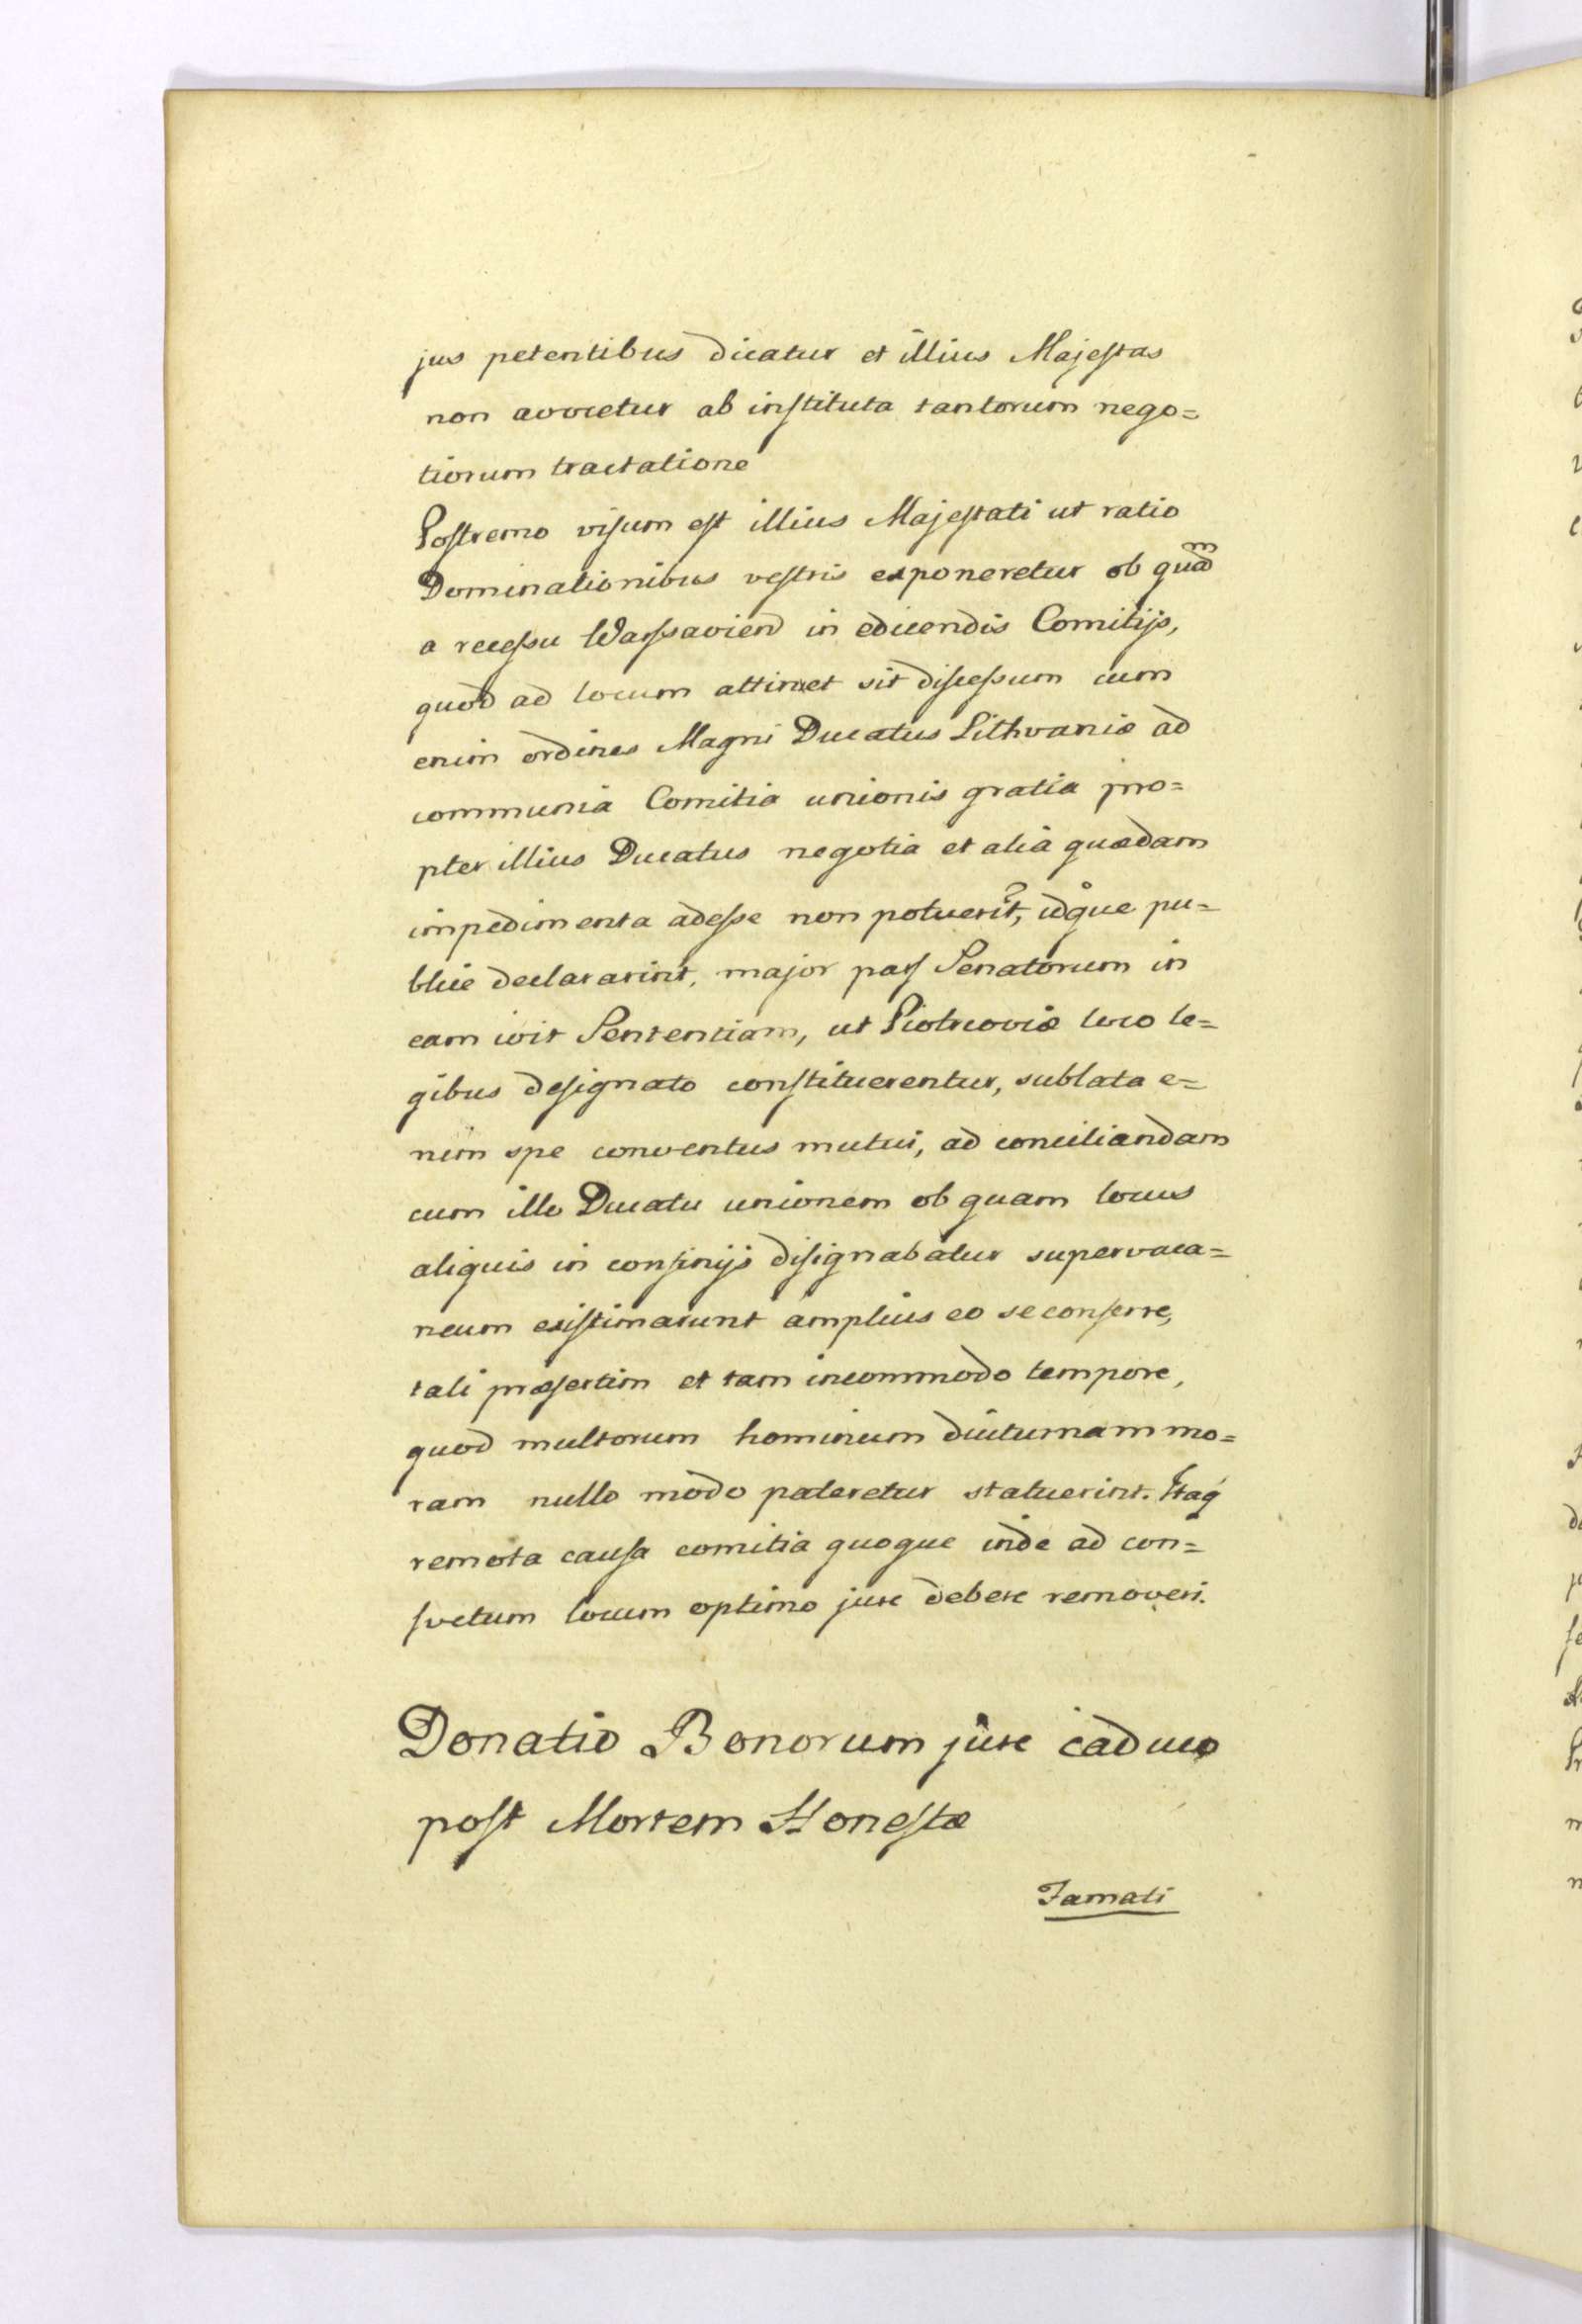 jus petentibus dicatur et illius Majeſtas
non avocetur ab inſtituta tantorum nego=
tiorum tractatione
Poſtremo viſum eſt illius Majeſtati ut ratio
Dominationibus veſtris exponeretur ob quam
a receſsu Warſsaviend in edicendis Comitijs,
quod ad locum attinet sit diſceſsum cum
enim ordines Magni Ducatus Lithvaniæ ad
communia Comitia unionis gratia pro=
pter illius Ducatus negotia et alia quædam
impedimenta adeſse non potuerit, idque pu=
blice declararint, major parſ Senatorum in
eam ivit Sententiam, ut Piotrcoviæ loco le=
gibus deſignato conſtituerentur, sublata e=
nim spe conventus mutui, ad conciliandam
cum illo Ducatu unionem ob quam locus
aliquis in confinijs diſignabatur supervaca=
neum exiſtimarunt amplius eo se conferre,
tali præſertim et tam incommodo tempore,
quod multorum hominum diuturnam mo=
ram nullo modo pateretur statuerint. Itaq
remota cauſa comitia quoque inde ad con=
ſvetum locum optimo jure debere removeri.
Donatio Bonorum jure caduco
poſt Mortem Honeſtæ
Famati